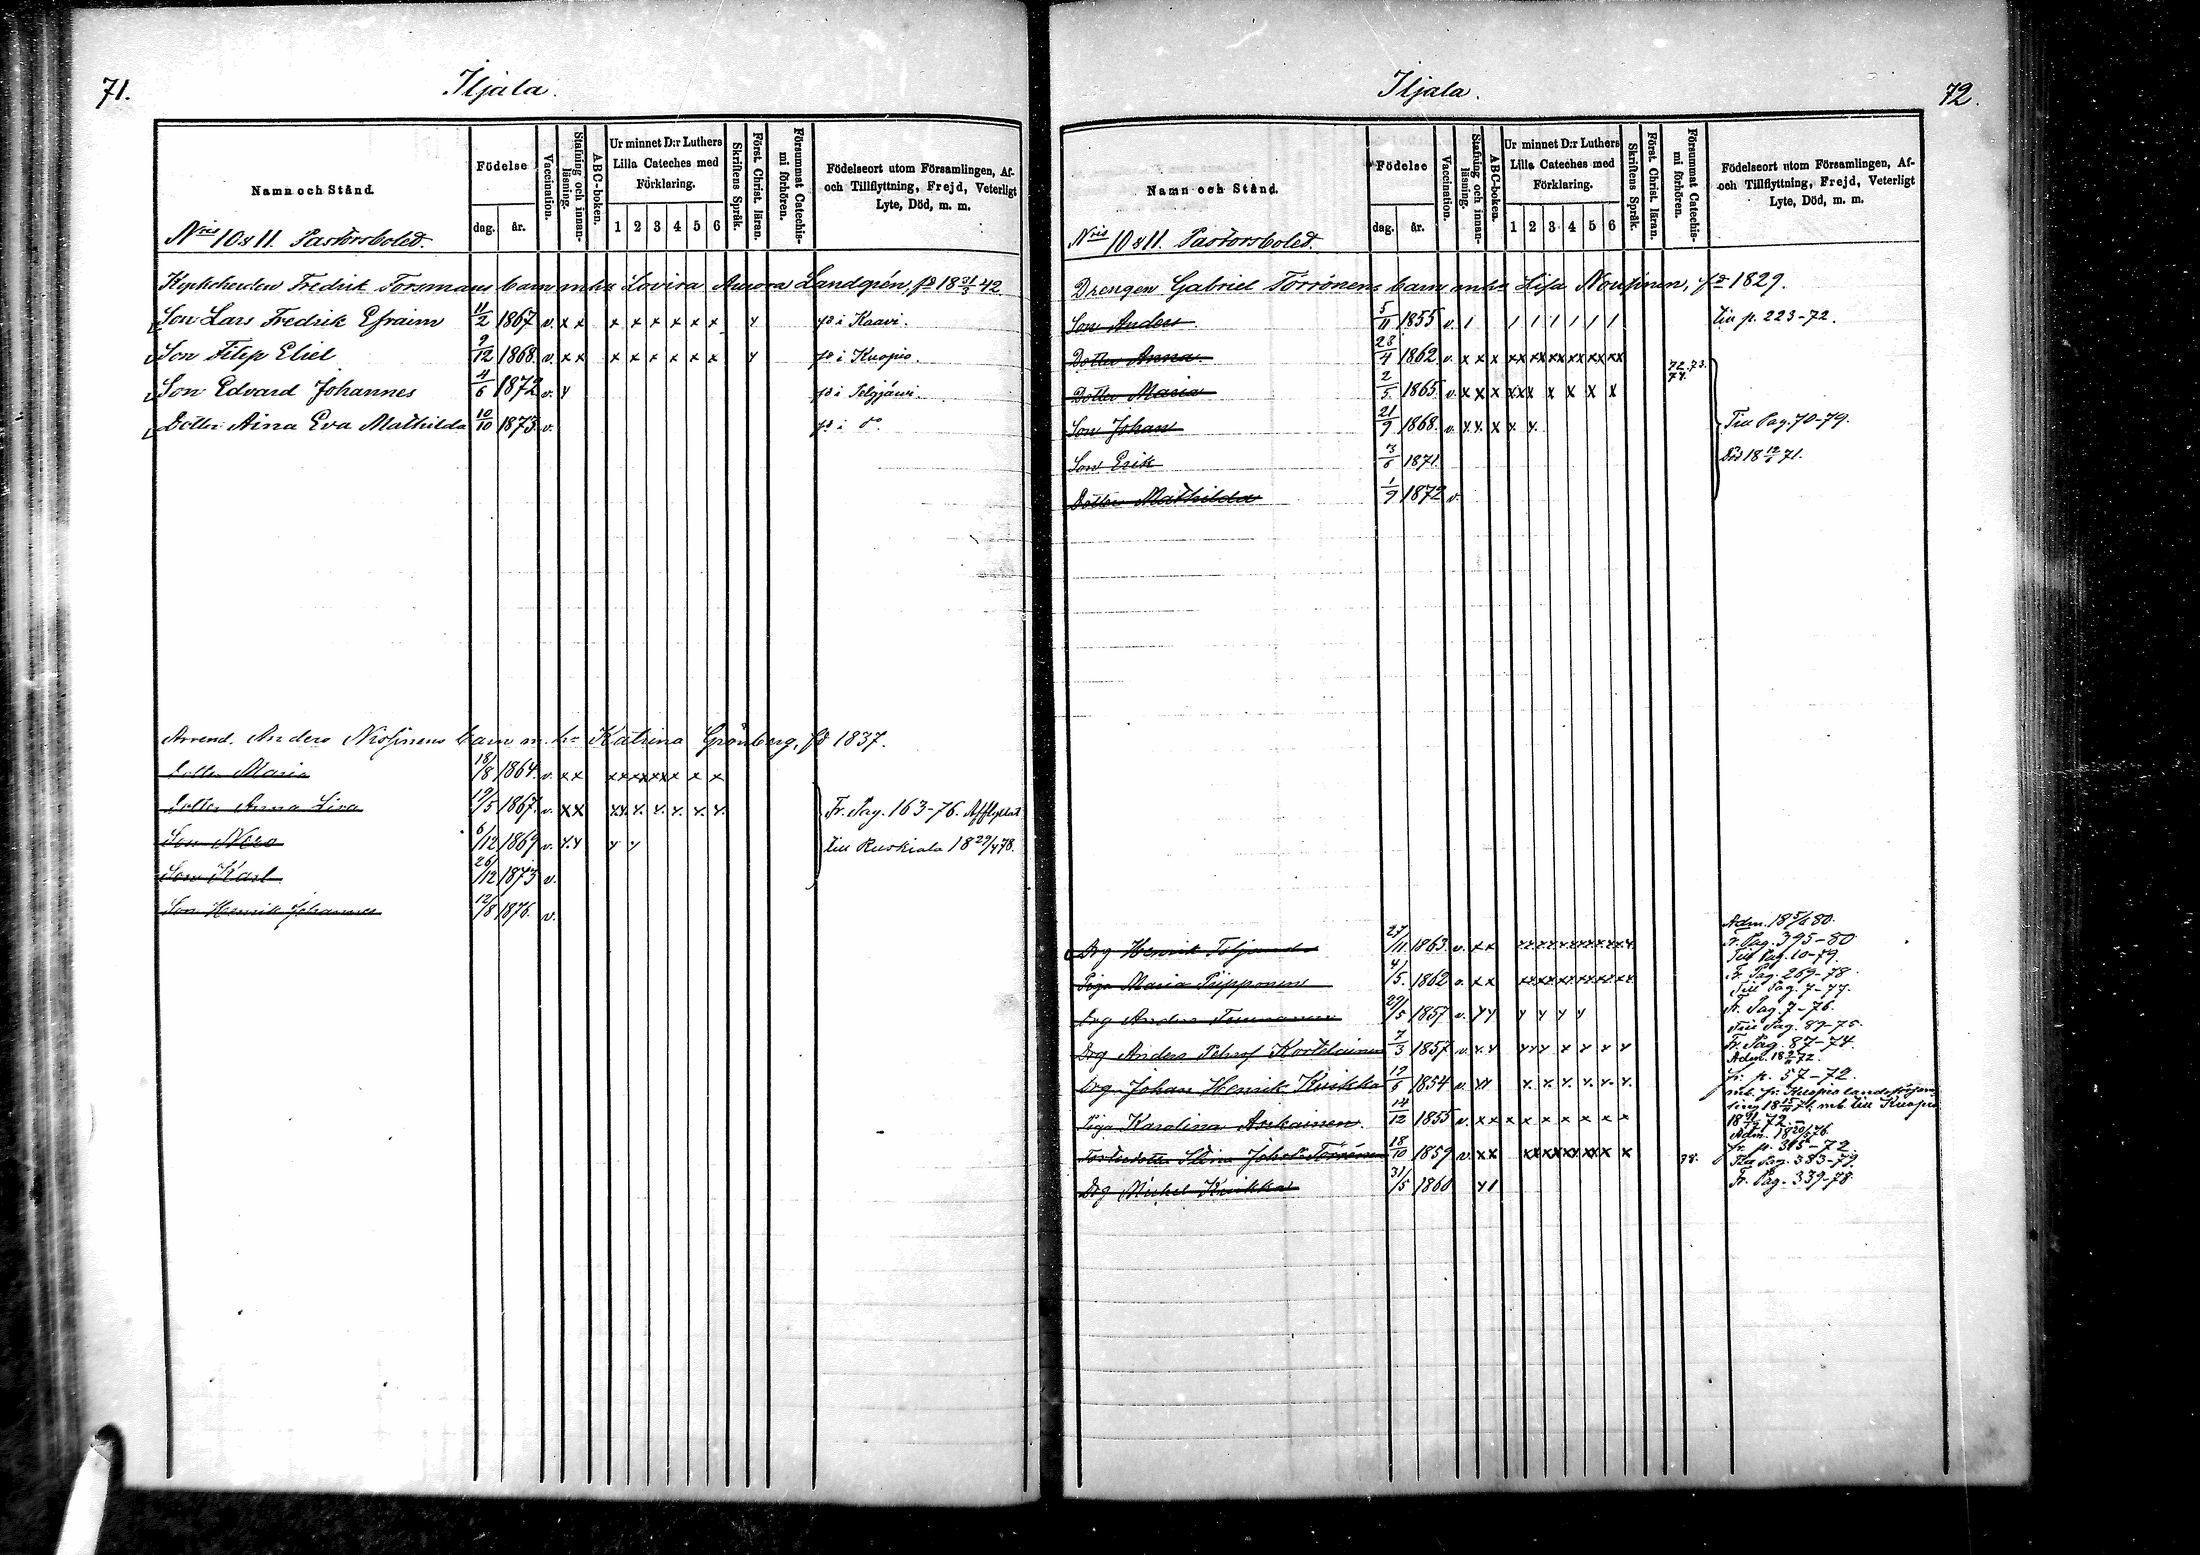 71.
Iljala.
Namn och Stånd.
Födelse
dag.
år.
Vaccination.
Stafning och innan-läsning.
ABC-boken.
Ur minnet D:r Luthers
Lilla Cateches med
Förklaring.
1 2 3 4 5 6
Skriftens Språk.
Först. Christ. läran.
Försummat Catechis-mi förhören.
Födelseort utom Församlingen, Af-
och Tillflyttning, Frejd, Veterligt
Lyte, Död, m. m.
Nris 10 & 11. Pastorsboled.
Fredrik Forsmans barn m. hu Lovira Aurora Landgrén, fd 18 21/3 42.
Son Lars Fredrik Efraim 11/2 1867 v. x x x x x x x x y fd i Kaavi.
Son Filip Eliel 9/12 1868. v. x x x x x x x x y fd i Kuopio.
Son Edvard Johannes 4/6 1872 v. y fd i Pelgjärvi
Dotter Aina Eva Mathilda 10/10 1873. v. fd i do
Arrend. Anders barn m. hu Katrina Grönberg, fd 1837.
Dotter Maria 18/8 1864. v. x x xx xx xx x x x
Dotter Anna Lisa 19/5 1867. v. x x
Fr. Pag. 163-76. Afflyttat
Son 6/12 1869 v. y y y y
till Ruskiala 18 29/4 78.
Son Karl 26/12 1873 v.
Son Henrik Johannes 12/8 1876. v.
72.
Iljala.
Namn och Stånd.
Födelse
dag.
år.
Vaccination.
Stafning och innan-läsning.
ABC-boken.
Ur minnet D:r Luthers
Lilla Cateches med
Förklaring.
1 2 3 4 5 6
Skriftens Språk.
Först. Christ. läran.
Försummat Catechis-mi förhören.
Födelseort utom Församlingen, Af-
och Tillflyttning, Frejd, Veterligt
Lyte, Död, m. m.
Nris 10 & 11. Pastorsboled.
Drengen Gabriel Törrönens barn m. hu Lisa Nousinen, fd 1829.
Son Anders 5/11 1855 v. / / / / / / / till p. 223-72.
Dotter Anna 28/4 1862 v. x x x xx xx xx xx xx xx 72. 73. 74.
Dotter Maria 2/5 1865 v. x x x xx x x x x x
Son Johan 21/9 1868. v. x x x x x Till Pag. 70-79.
Son Erik 3/6 1871. Död 18 71.
Dotter Mathilda 1/9 1872 v.
Adm. 18 80.
Drg Henrik 27/11 1863. v. x x
Fr. Pag. 395-80
Till Pag. 10-79.
Piga Maria Piipponen 4/5. 1862 v. x x
Fr. Pag. 269-78.
Till Pag. 7-77.
Drg Anders 29/5 1857 v. y y y y y y
Fr. Pag. 7-76.
Till Pag. 87-75.
Drg Anders Pehrsf Kortelainen 7/3 1857 v. x y
Fr. Pag. 87-74.
Adm. 18 72.
Drg Johan Henrik Kuikka 19/6 1854 v. y y
fr. p. 57-72.
mb. fr. Kuopio landsförsam-
ling 18 mb till Kuopio
Piga Karolina Asikainen. 14/12 1855 v. x x x x x x x x x
Adm. 18 76.
Fosterdotter Stina Törrönen 18/10 1859 v. x x 78.
fr. p. 315-72
Till Pag. 383-79.
Drg Michel Kuikka 31/5 1860 y 1
Fr. Pag. 339-78